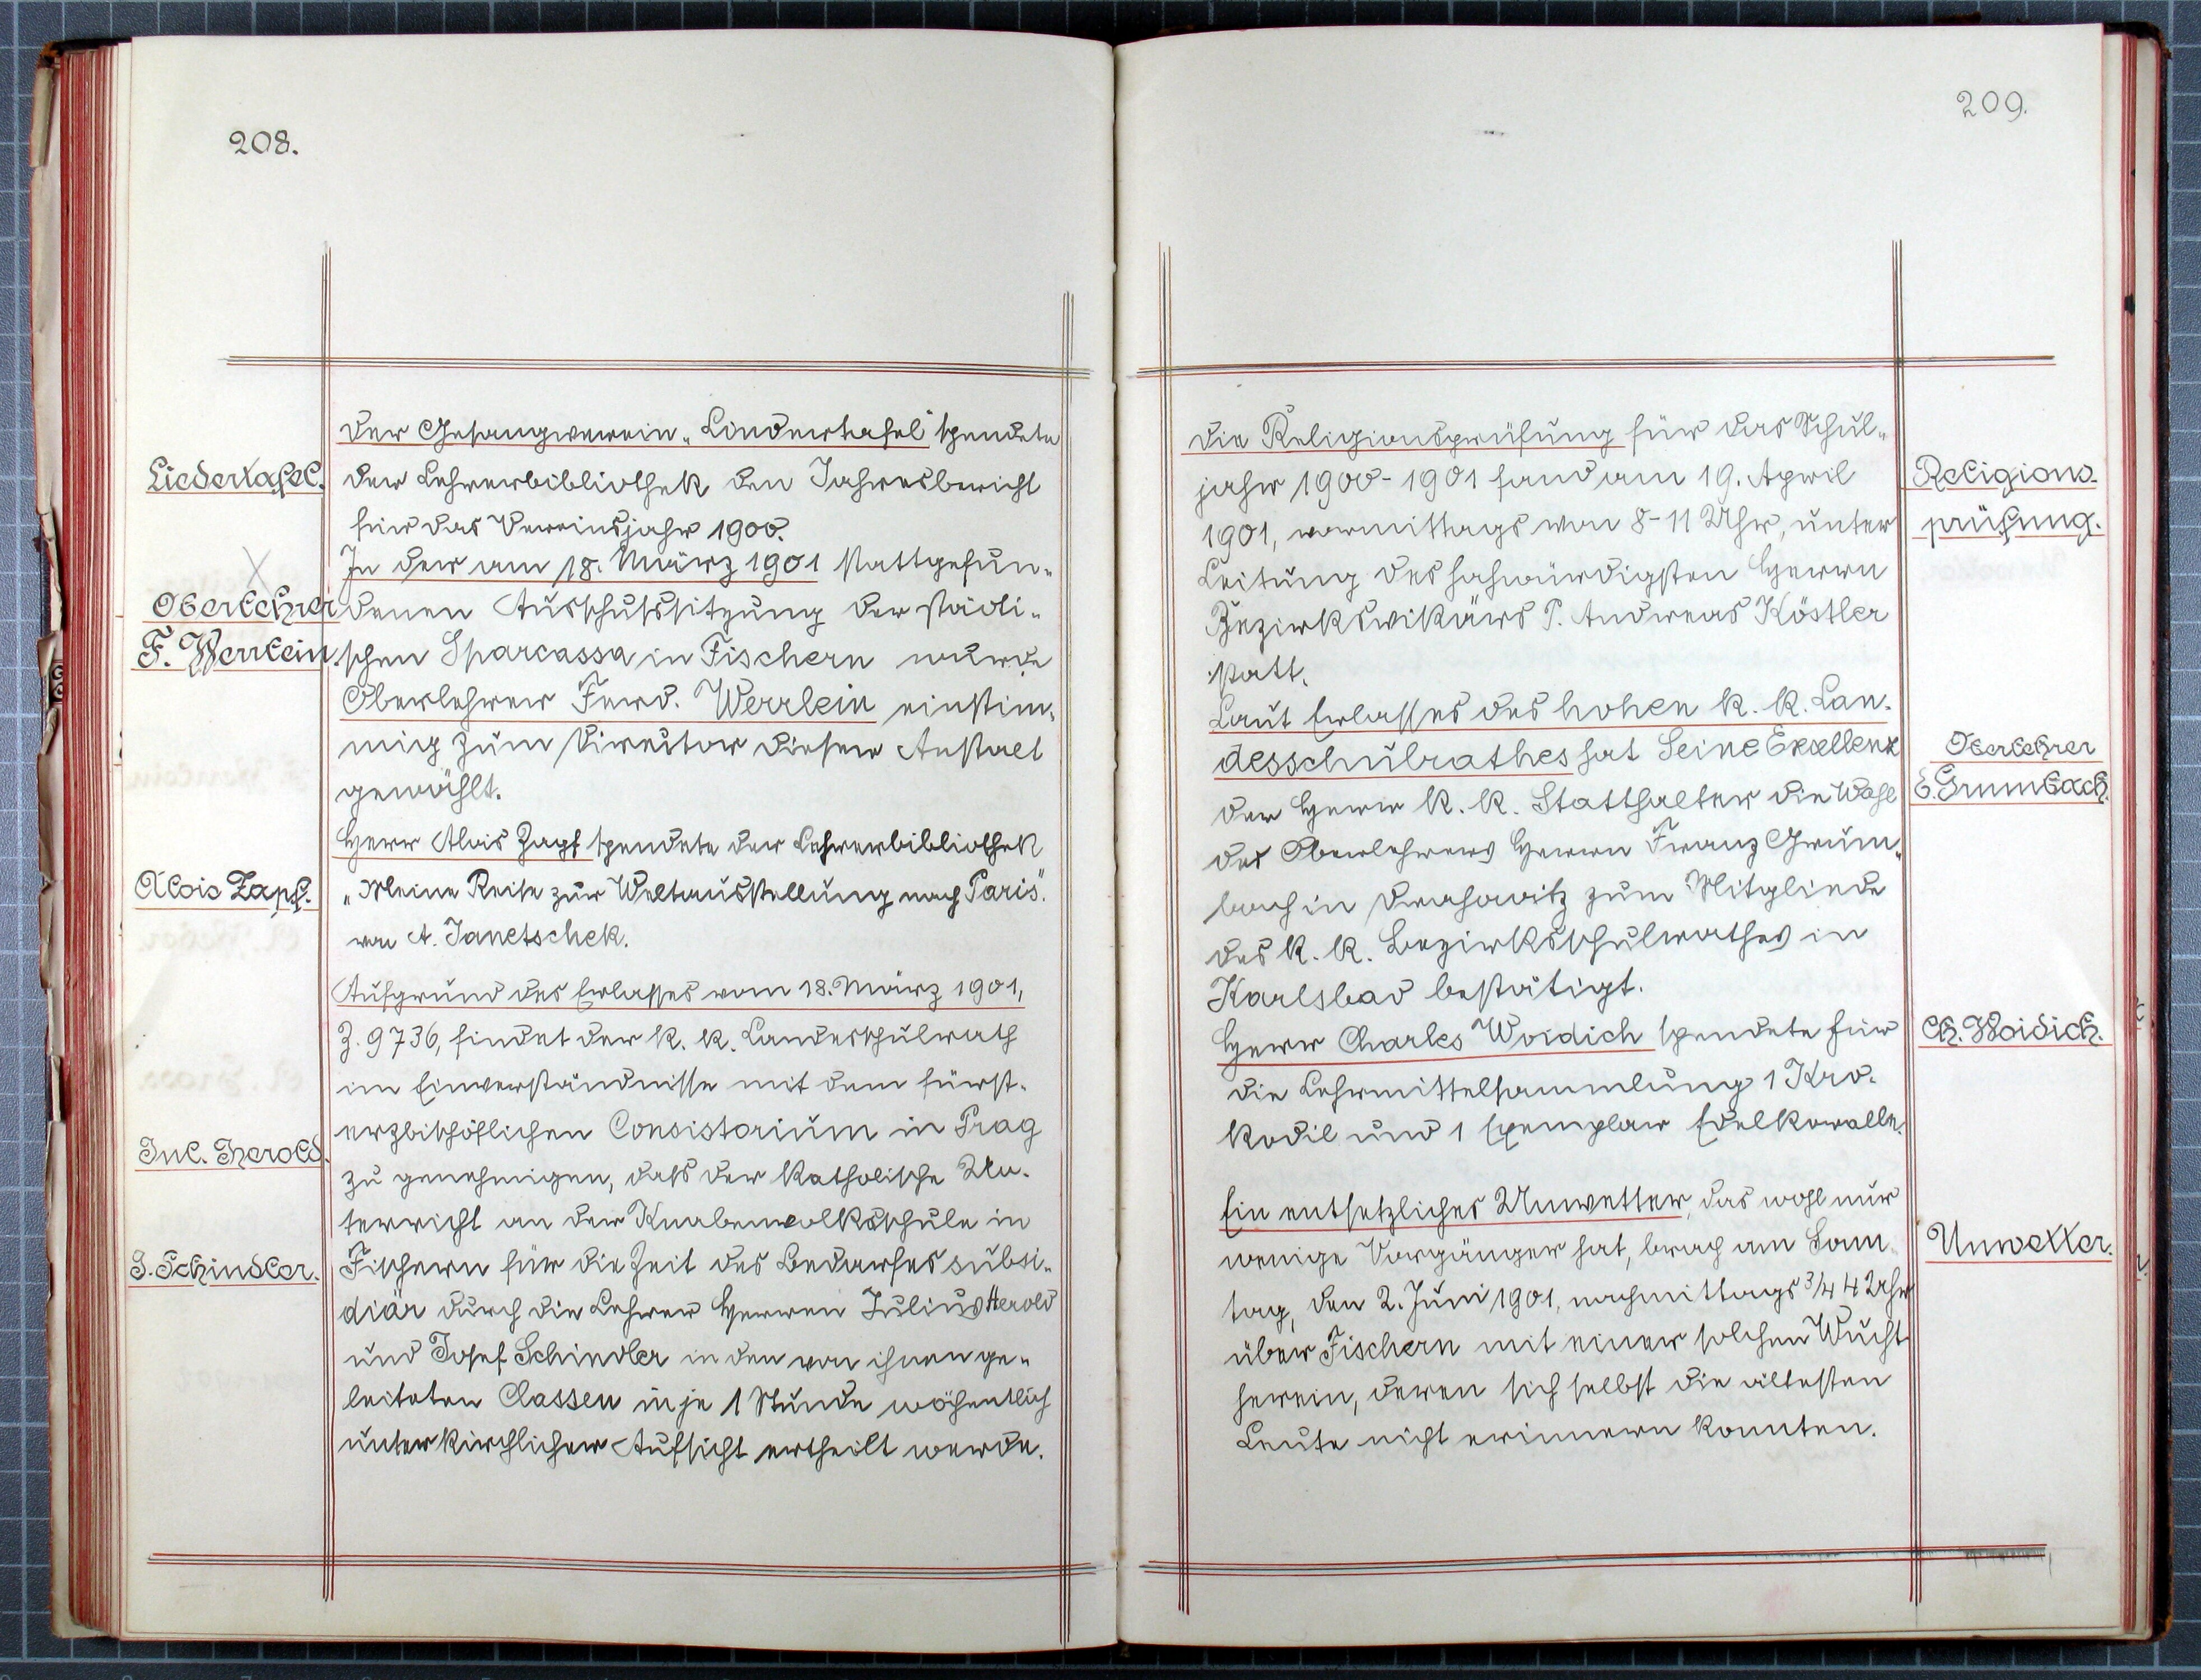 208.
Liedertafel.
Oberlehrer
F. Werrlein.
Alois Zapf.
Jul. Herold.
J. Schindler.
Der Gesangverein „Liedertafel" spendete
der Lehrerbibliothek den Jahresbericht
für das Vereinsjahr 1900.
In der am 18. März 1901 stattgefun-
denen Ausschußsitzung der städti-
schen Sparcassa in Fischern wurde
Oberlehrer Ferd. Werrlein einstim-
mig zum Director dieser Anstalt
gewählt.
Herr Alois Zapf spendete der Lehrerbibliothek
„Meine Reise zur Weltausstellung nach Paris".
von A. Janetschek.
Aufgrund des Erlasses vom 18. März 1901,
Z. 9736, findet der k. k. Landesschulrath
im Einverständnisse mit dem fürst-
erzbischöflichen Consistorium in Prag
zu genehmigen, daß der katholische Un-
terricht an der Knabenvolksschule in
Fischern für die Zeit des Bedarfes subsi-
diär durch die Lehrer Herren Julius Herold
und Josef Schindler in den von ihnen ge-
leiteten Classen in je 1 Stunde wöchentlich
unter kirchlicher Aufsicht ertheilt werde.
209.
Die Religionsprüfung für das Schul-
jahr 1900-1901 fand am 19. April
1901, vormittags von 8-11 Uhr, unter
Leitung des hochwürdigsten Herrn
Bezirksvikärs P. Andreas Köstler
statt.
Laut Erlasses des hohen k. k. Lan-
desschulrathes hat Seine Exellenz
der Herr k. k. Statthalter die Wahl
des Oberlehrers Herrn Franz Grum-
bach in Drahowitz zum Mitgliede
des k. k. Bezirksschulrathes in
Karlsbad bestätigt.
Herr Charles Woidich spendete für
die Lehrmittelsammlung 1 Kro-
kodil und 1 Exemplar Edelkoralle.
Ein entsetzliches Unwetter, das wohl nur
wenige Vorgänger hat, brach am Sonn-
tag, den 2. Juni 1901, nachmittags 3/4 4 Uhr
über Fischern mit einer solchen Wucht
herein, deren sich selbst die ältesten
Leute nicht erinnern konnten.
Religions-
prüfung.
Oberlehrer
Grumbach.
Ch. Woidich.
Unwetter.